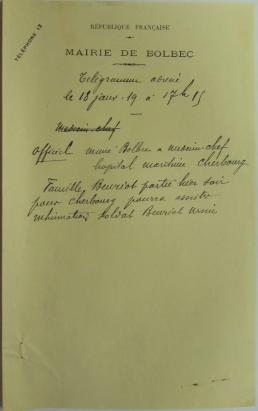 TÉLÉPHONE 13
RÉPUBLIQUE FRANÇAISE
MAIRIE DE BOLBEC
Télégramme
le 18 janv. 19 à 17h 15
Médecin-chef
Officiel Bolbec à médecin-chef
hopital maritime Cherbourg
Famille Beuriot partie hier soir
pour Cherbourg pourra assister
inhumation soldat Beuriot